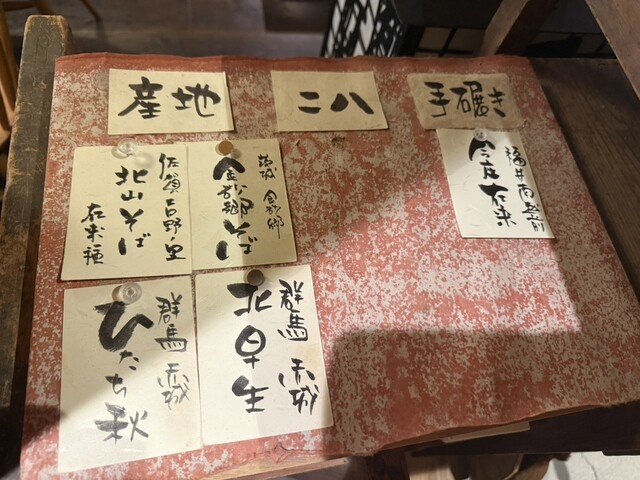 産地
二八
手碾き
佐賀吉野ノ里
北山そば
在来種
茨城 金砂郷
金砂郷そば
福井南越前
今庄在来
群馬 赤城
ひたち秋
群馬 赤城
北早生